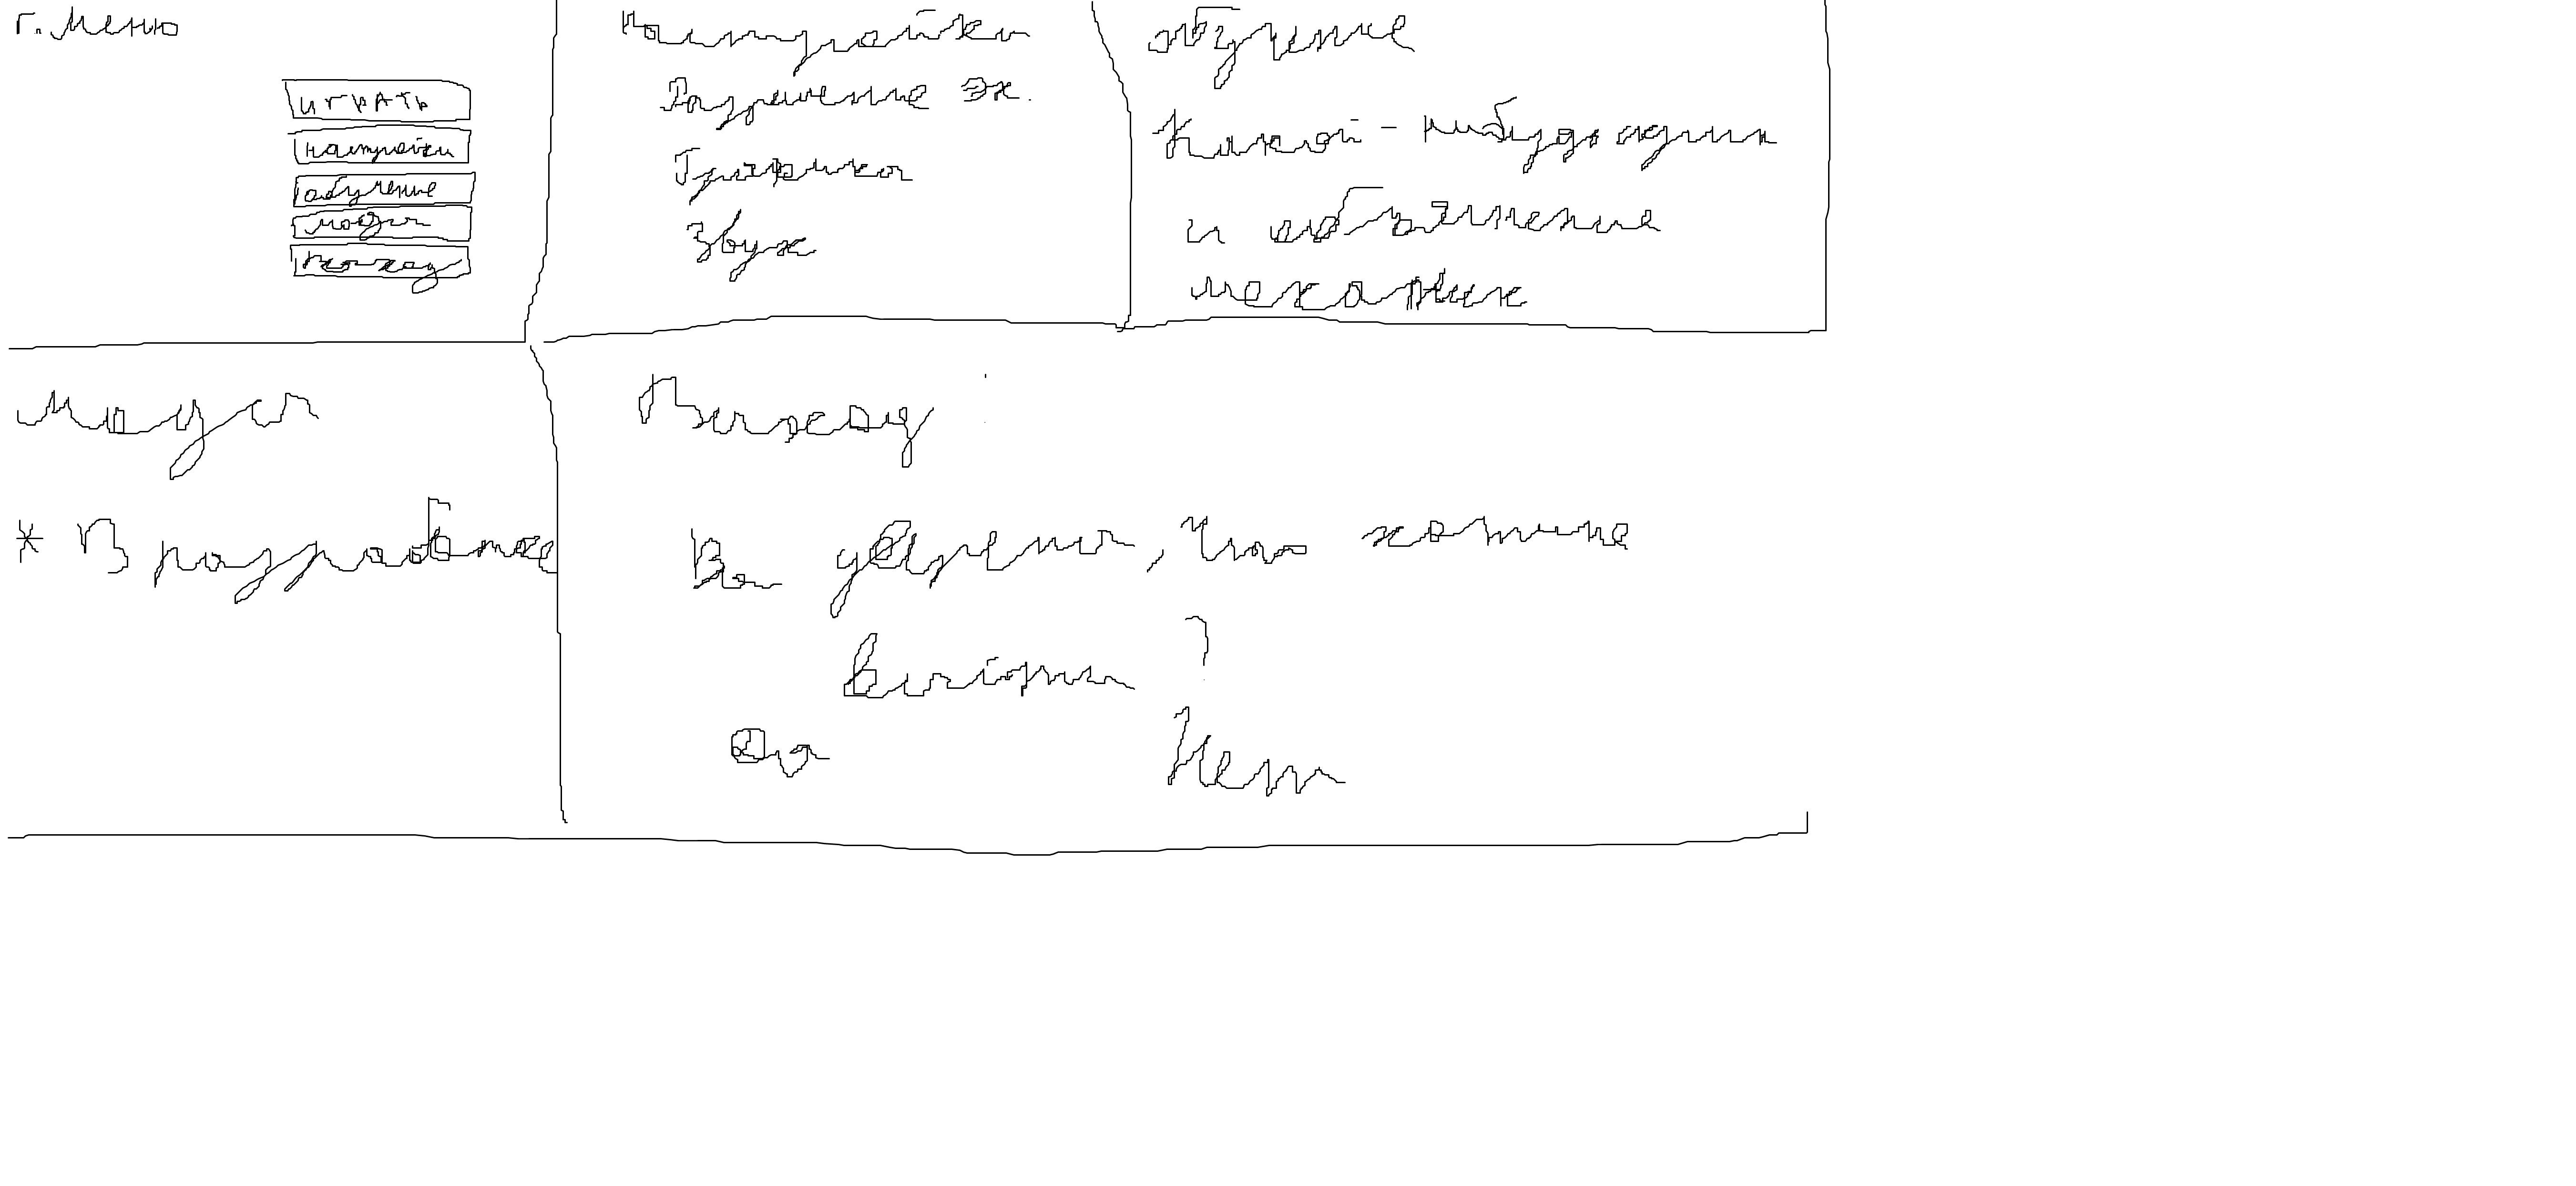 г. Меню
играть
настройки
обучение
моды
выход
Настройки
Разрешение эк.
Графика
Звук
обучение
Какой-нибудь
и объяснение
механик
Моды
* В разработке
Выход
Вы уверены, что хотите
выйти ?
Да Нет